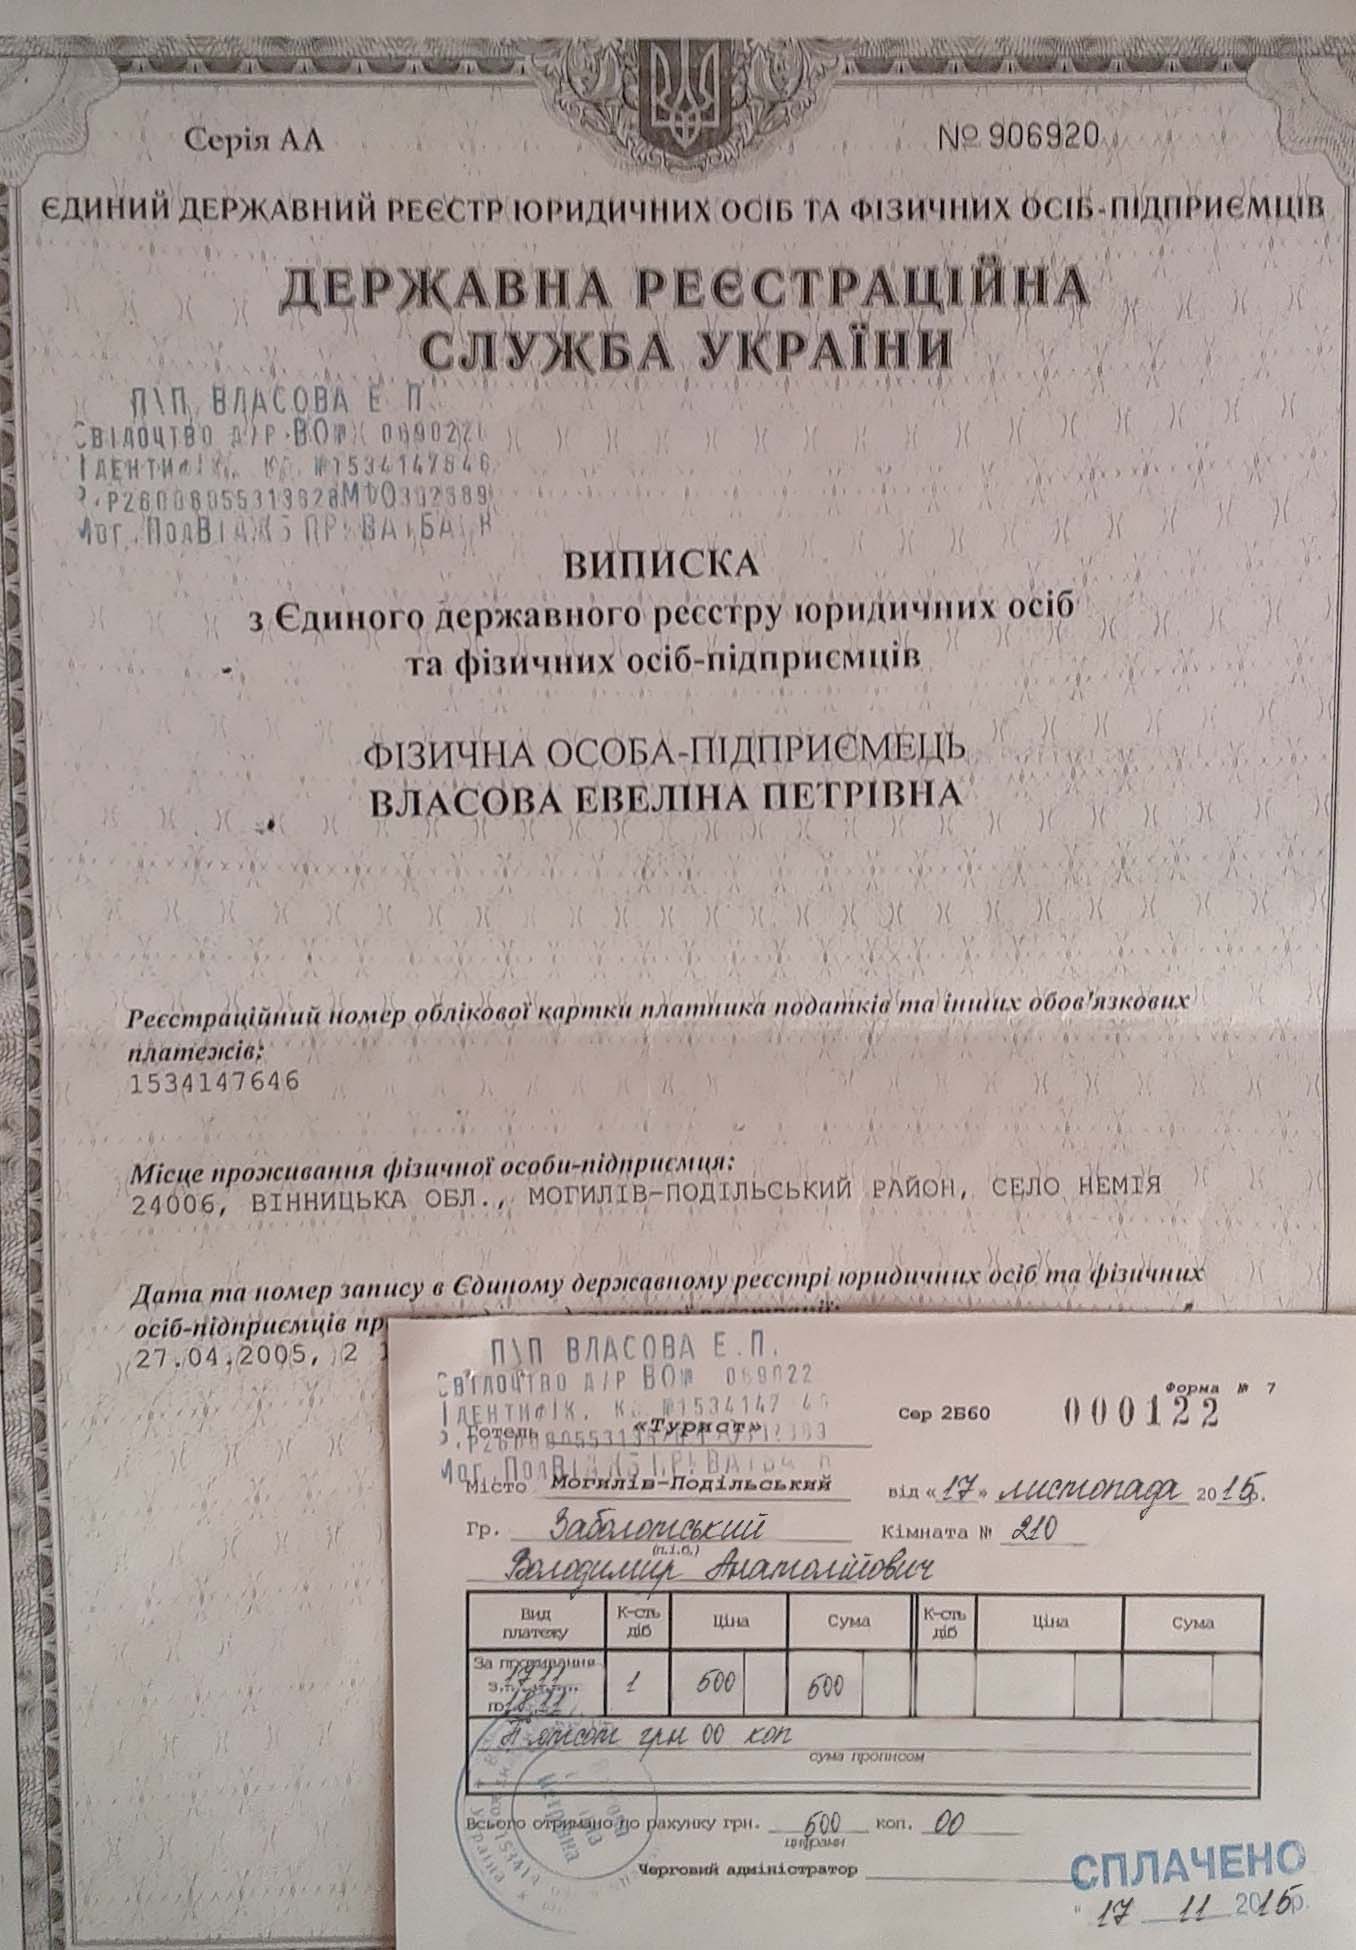 Серія АА № 906920
ЄДИНИЙ ДЕРЖАВНИЙ РЕЄСТР ЮРИДИЧНИХ ОСІБ ТА ФІЗИЧНИХ ОСІБ-ПІДПРИЄМЦІВ
ДЕРЖАВНА РЕЄСТРАЦІЙНА
СЛУЖБА УКРАЇНИ
П\П ВЛАСОВА Е П.
СВІДОЦТВО Д/Р ВОФ
ІДЕНТИФІК. К. №1534147646
Мог.Под ПРИВАТБАНК
ВИПИСКА
з Єдиного державного реєстру юридичних осіб
та фізичних осіб-підприємців
ФІЗИЧНА ОСОБА-ПІДПРИЄМЕЦЬ
ВЛАСОВА ЕВЕЛІНА ПЕТРІВНА
Реєстраційний номер облікової картки платника податків та інших обов'язкових
платежів:
1534147646
Місце проживання фізичної особи-підприємця:
24006, ВІННИЦЬКА ОБЛ., МОГИЛІВ-ПОДІЛЬСЬКИЙ РАЙОН, СЕЛО НЕМІЯ
Дата та номер запису в Єдиному державному реєстрі юридичних осіб та фізичних
осіб-підприємців пр
27.04.2005, 2
П\П ВЛАСОВА Е.П.
СВІДОЦТВО Д/Р ВОФ 069022
ІДЕНТИФІК. К. №1534147
Форма № 7
Готель «Турист» Сер 2Б60 000122
Мог.Под
Місто Могилів-Подільський від «17» листопада 2015р.
Гр. Заболотський Кімната № 210
(п.і.б.)
Володимир Анатолійович
Вид платежу К-сть діб Ціна Сума К-сть діб Ціна Сума
За проживання
з 17.11 1 500 500
по 18.11
П'ятсот грн 00 коп
сума прописом
Всього отримано по рахунку грн. 500 коп. 00
цифрами
Черговий адміністратор
СПЛАЧЕНО
" 17 11 2015р.
Петрівна
Україна